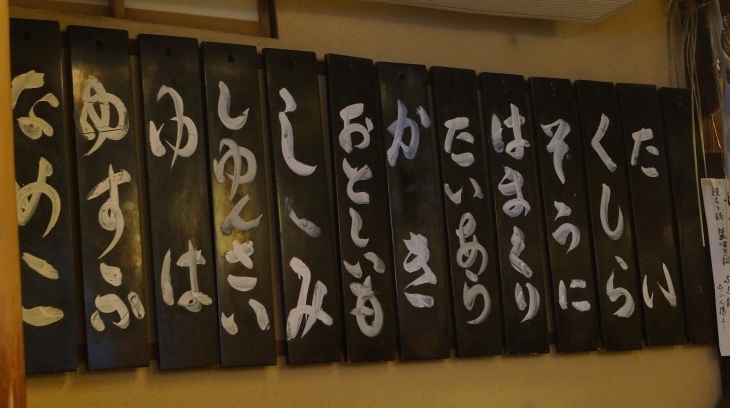 たい
くしら
そうに
はまくり
たいあら
かき
おとしいも
しゝみ
しゆんさい
ゆは
なめこ